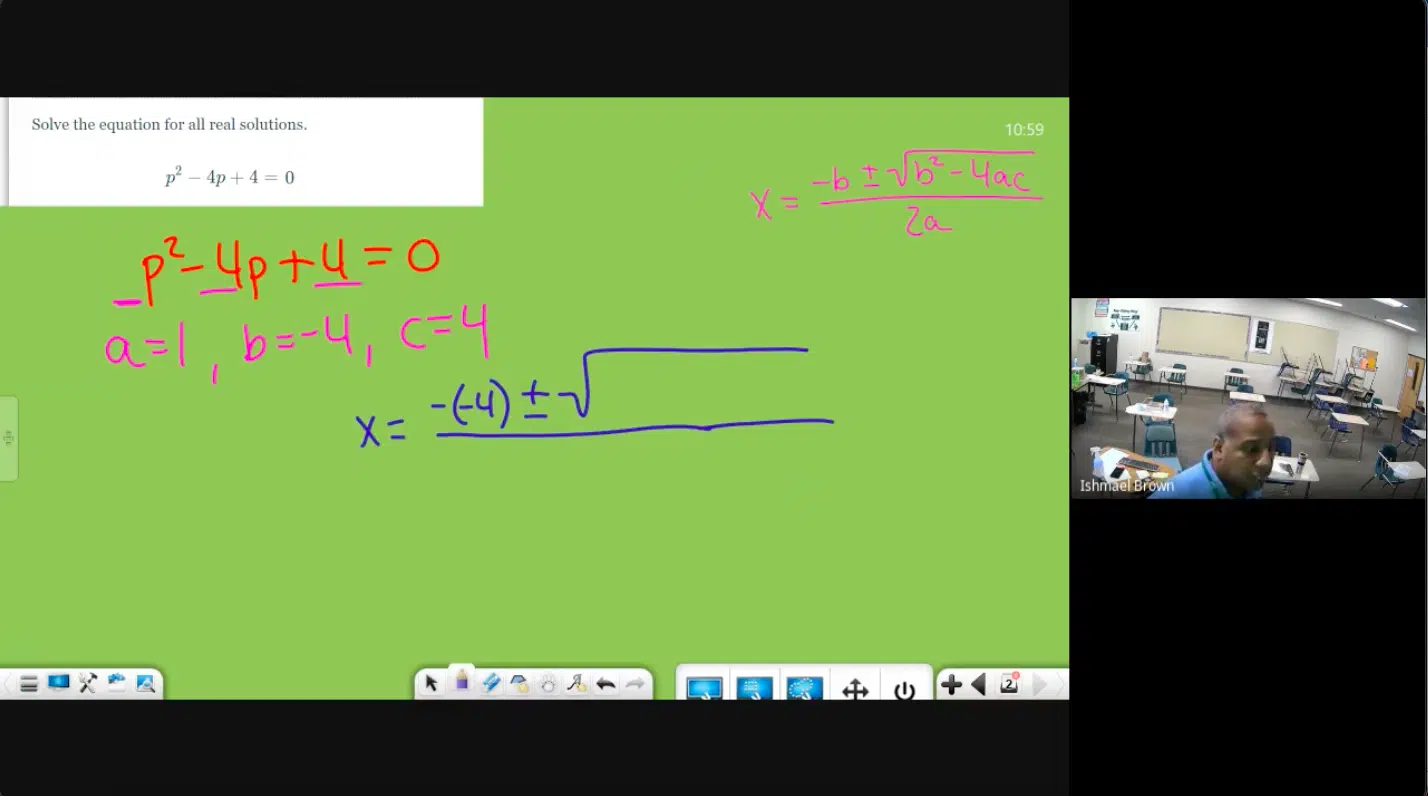 Solve the equation for all real solutions.
p² − 4p + 4 = 0
10:59
x = -b ± √b² - 4ac
2a
p² - 4p + 4 = 0
a = 1, b = -4, c = 4
x = -(-4) ± √
2
Ishmael Brown